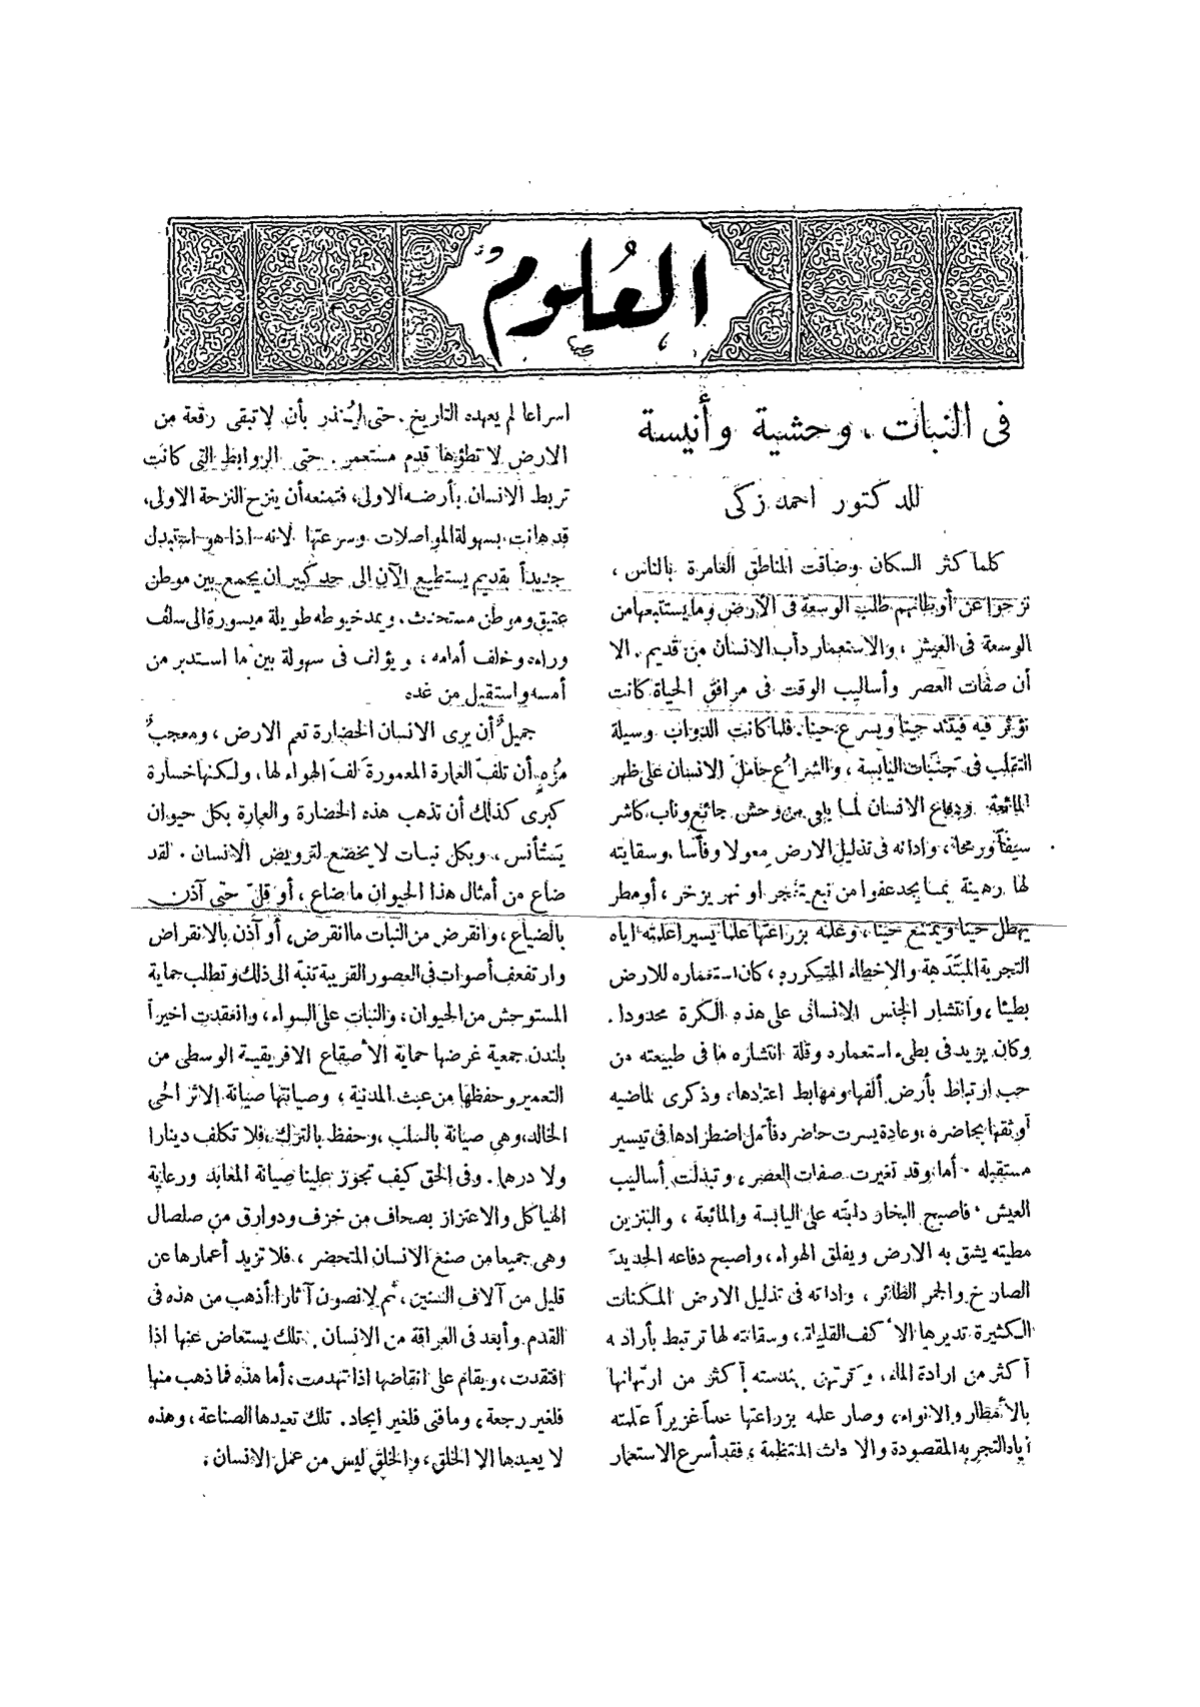 العُلوم
في النبات ، وحشية وأنيسة
للدكتور احمد زكي
كلما كثر السكان وضاقت المناطق العامرة بالناس ،
نزحوا عن أوطانهم طلب الوسعة في الأرض وما يستتبعها من
الوسعة في العيش ، والاستعمار دأب الانسان من قديم . الا
أن صفات العصر وأساليب الوقت في مرافق الحياة كانت
تؤثر فيه فيتئد حينا ويسرع حينا. فلما كانت الدواب وسيلة
التقلب في جنبات اليابسة ، والشراع حامل الانسان على ظهر
المائعة ودفاع الانسان لما يلي من وحش جائع وناب كاشر
سيفاً ورمحاً ، واداته في تذليل الارض معولا وفأسا . وسقايته
لها رهينة بما يجد عفوا من نبع يتفجر او نهر يزخر ، أو مطر
يهطل حينا ويمتنع حينا ، وعلمه بزراعتها علما يسيرا علمته اياه
التجربة المبتدهة والاخطاء المتكررة ، كان استعماره للارض
بطيئا ، وانتشار الجنس الانساني على هذه الكرة محدودا .
وكان يزيد في بطيء استعماره وقلة انتشاره ما في طبيعته من
حب ارتباط بأرض ألفها ومهابط اعتادها ، وذكرى لماضيه
أوثقها بحاضره ، وعادة يسرت حاضر دفأمل اضطرادها في تيسير
مستقبله . أما وقد تغيرت صفات العصر ، وتبدلت أساليب
العيش . فاصبح البخار دابته على اليابسة والمائعة ، والبنزين
مطيته يشق به الارض ويفلق الهواء ، واصبح دفاعه الحديد
الصارخ والجمر الطائر ، واداته في تذليل الارض المكنات
الكثيرة تديرها الأكف القليلة ، وسقايته لها ترتبط بأراده
أكثر من ارادة الماء ، وترتهن بهندسته أكثر من ارتهانها
بالأمطار والانواء ، وصار علمه بزراعتها علماً غزيراً علمته
اياه التجربه المقصودة والا داث المنتظمة ، فقد أسرع الاستعمار
اسراعا لم يعهده التاريخ . حتى ليُنذر بأن لا تبقى رقعة من
الارض لا تطؤها قدم مستعمر . حتى الروابط التي كانت
تربط الانسان بأرضه الاولى ، فتمنعه أن ينزح النزحة الاولى،
قد هانت بسهولة المواصلات وسرعتها لانه اذا هو استبدل
جديداً بقديم يستطيع الآن الى حد كبير ان يجمع بين موطن
عتيق وموطن مستحدث . ويمد خيوطه طويلة ميسورة الى سلف
وراءه وخلف أمامه ، ويؤلف في سهولة بين ما استدبر من
أمسه واستقبل من غده
جميلٌ أن يرى الانسان الحضارة تعم الارض ، ومعجبٌ
مُزْهٍ أن تلفّ العمارة المعمورة لفّ الهواء لها ، ولكنها خسارة
كبرى كذلك أن تذهب هذه الحضارة والعمارة بكل حيوان
يستأنس ، وبكل نبات لا يخضع لترويض الانسان . لقد
ضاع من أمثال هذا الحيوان ما ضاع ، أو قلّ حتى آذن
بالضياع ، وانقرض من النبات ما انقرض ، أو آذن بالانقراض
وارتفعت أصوات في العصور القريبة تنبّه الى ذلك وتطلب حماية
المستوحش من الحيوان ، والنبات على السواء ، وانعقدت اخيراً
بلندن جمعية غرضها حماية الأصقاع الافريقية الوسطى من
التعمير وحفظها من عبث المدنية ، وصيانتها صيانة الاثر الحي
الخالد ، وهي صيانة بالسلب ، وحفظ بالترك ، فلا تكلف دينارا
ولا درهما . وفي الحق كيف تجوز علينا صيانة المعابد ورعاية
الهياكل والاعتزاز بصحاف من خزف ودوارق من صلصال
وهي جميعا من صنع الانسان المتحضر ، فلا تزيد أعمارها عن
قليل من آلاف السنين ، ثم لا نصون آثارا أذهب من هذه في
القدم وأبعد في العراقة من الانسان . تلك يستعاض عنها اذا
افتقدت ، ويقام على انقاضها اذا تهدمت ، أما هذه فما ذهب منها
فلغير رجعة ، وما فنى فلغير ايجاد . تلك تعيدها الصناعة ، وهذه
لا يعيدها الا الخلق ، والخلق ليس من عمل الانسان .